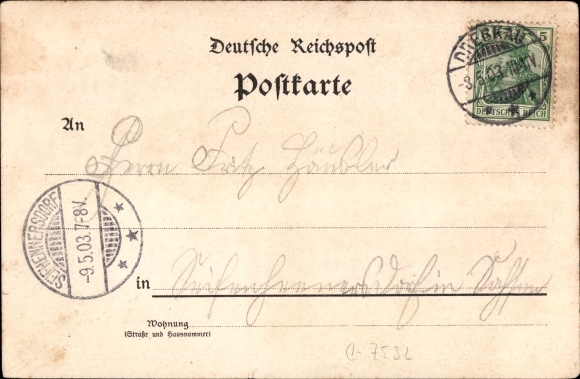 Deutsche Reichspost
Postkarte
DREBKAU
8.5.03
5
DEUTSCHES REICH
An
Herrn Fritz Häusler
SEIFHENNERSDORF
-9.5.03.7-8V.
in Seifhennersdorf in Sachsen
Wohnung
(Straße und Hausnummer)
7532